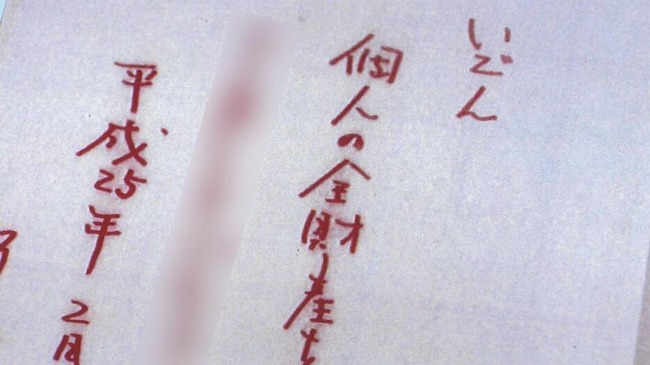 いごん
個人の全財産を
平成25年2月